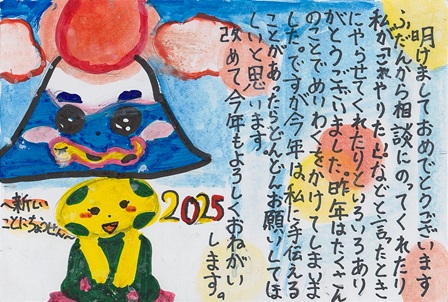 明けましておめでとうございます
ふだんから相談にのってくれたり
私が「これやりたい!」などと言ったとき
にやらせてくれたりといろいろあり
がとうございました。昨年はたくさん
のことでめいわくをかけてしまいま
した。ですが今年は、私に手伝える
ことがあったらどんどんお願いしてほ
しいと思います。
改めて今年もよろしくおねがい
します。
2025
〜新しい
ことにちょうせん〜